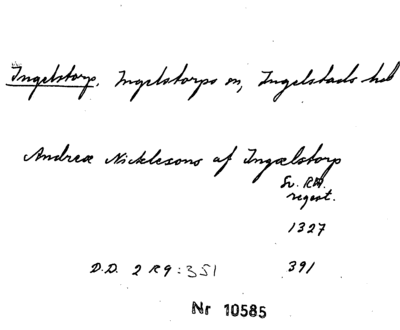 Ingelstorp. Ingelstorps sn, Ingelstads hd
Andreæ Nicklesons af Ingælstorp
Sv. RA.
regest.
1327
D.D. 2 R 9:351 391
Nr 10585